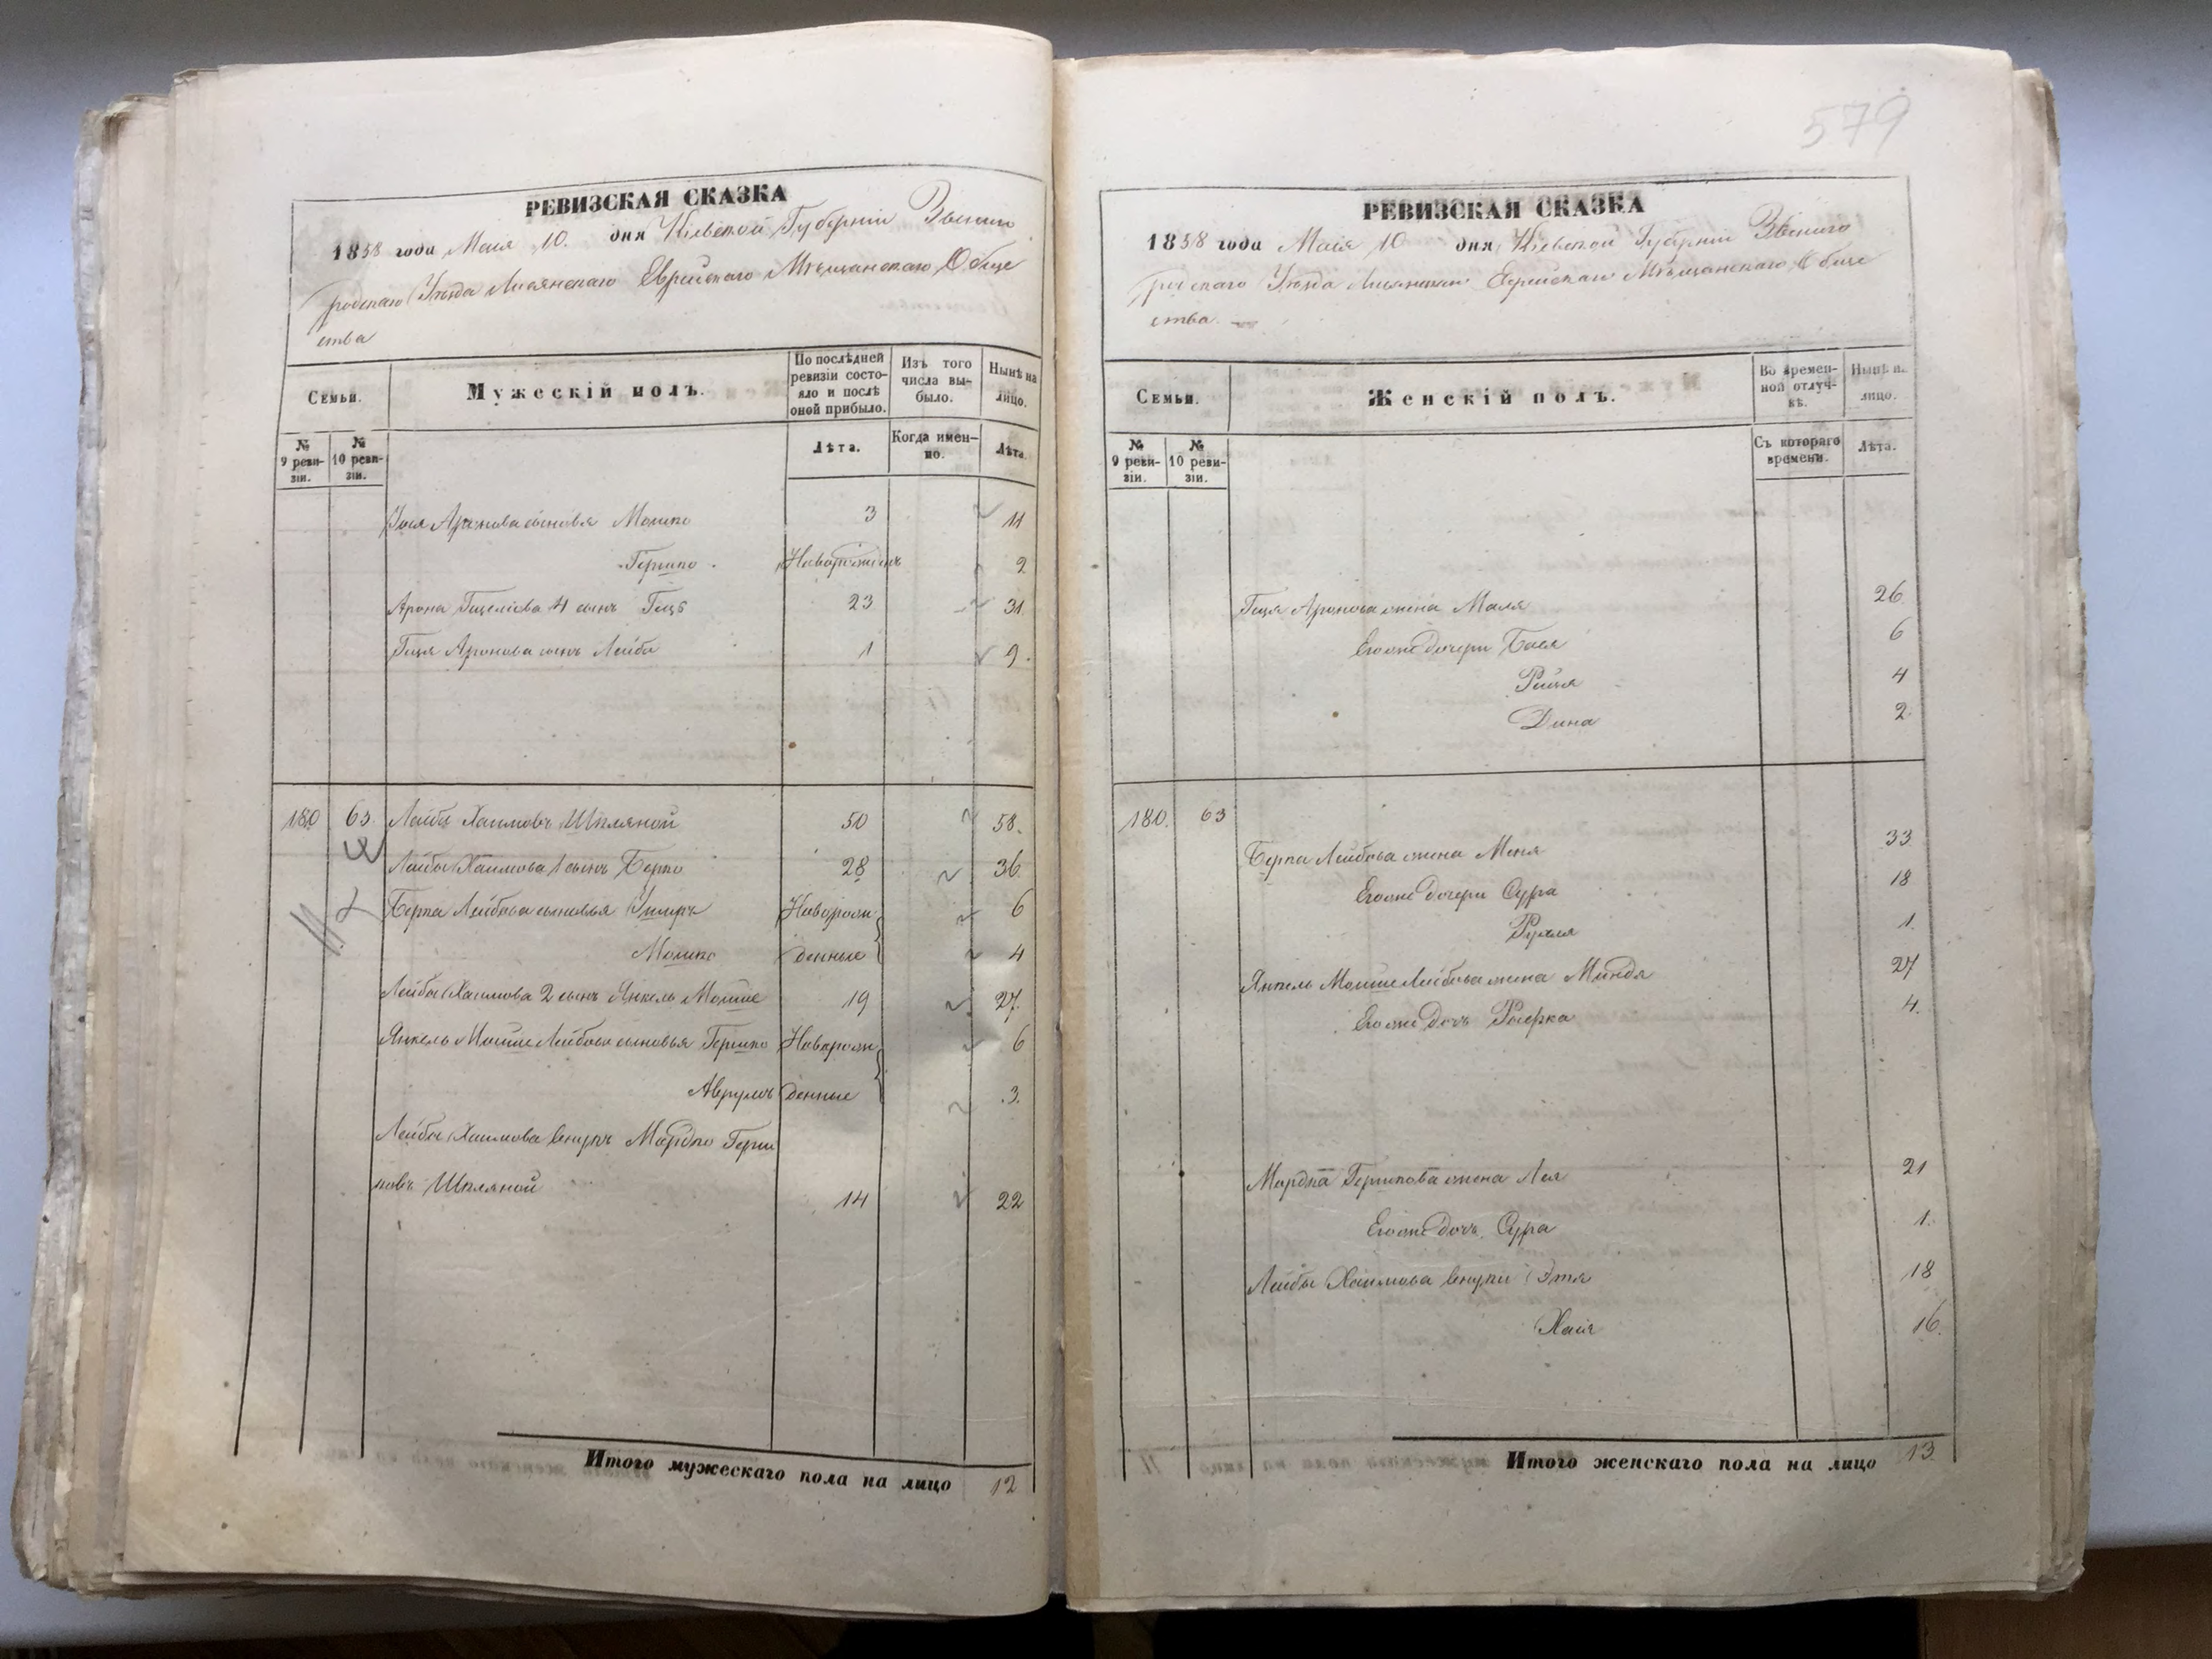 РЕВИЗСКАЯ СКАЗКА
1858 года Мая 10 дня Кіевской Губерніи Звениго
родскаго Уѣзда Лисянскаго Еврейскаго Мѣщанскаго Обще
ства
Семьи.
Мужескій полъ.
По послѣдней ревизіи состояло и послѣ оной прибыло.
Изъ того числа выбыло.
Нынѣ на лицо.
№ 9 ревизіи.
№ 10 ревизіи.
Лѣта.
Когда именно.
Лѣта.
Аронова сыновья Мошко 3 11
Гершко Новорожденъ 2
Арона 4 сынъ Гецъ 23 31
Геця Аронова сынъ Лейба 1 9.
180 63. Лейба Хаимовъ Шкляной 50 58.
Лейбы Хаимова 1 сынъ Берко 28 36
Берка Лейбова сыновья Ушеръ Новорож 6
Мошко денные 4
Лейбы Хаимова 2 сынъ Янкель Мошше 19 27.
Янкель Мошше Лейбова сыновья Гершко Новорож 6
Аврумъ денные 3.
Лейбы Хаимова внукъ Мордко Герш
ковъ Шкляной 14 22
Итого мужескаго пола на лицо 12
579
РЕВИЗСКАЯ СКАЗКА
1858 года Мая 10 дня Кіевской Губерніи Звениго
родскаго Уѣзда Лисянскаго Еврейскаго Мѣщанскаго Обще
ства.
Семьи.
Женскій полъ.
Во временной отлучкѣ.
Нынѣ на лицо.
№ 9 ревизіи.
№ 10 ревизіи.
Съ котораго времени.
Лѣта.
Геця Аронова жена Маля 26.
Его же дочери Бася 6
4
Дина 2
180. 63
Берка Лейбова жена Меня 33
Его же дочери Сура 18
Рухля 1.
Янкель Мошше Лейбова жена Миндя 27
Его же дочь 4.
Мордка Гершкова жена Лея 21
Его же дочь Сура 1.
Лейбы Хаимова внуки Этя 18
Хая 16.
Итого женскаго пола на лицо 13